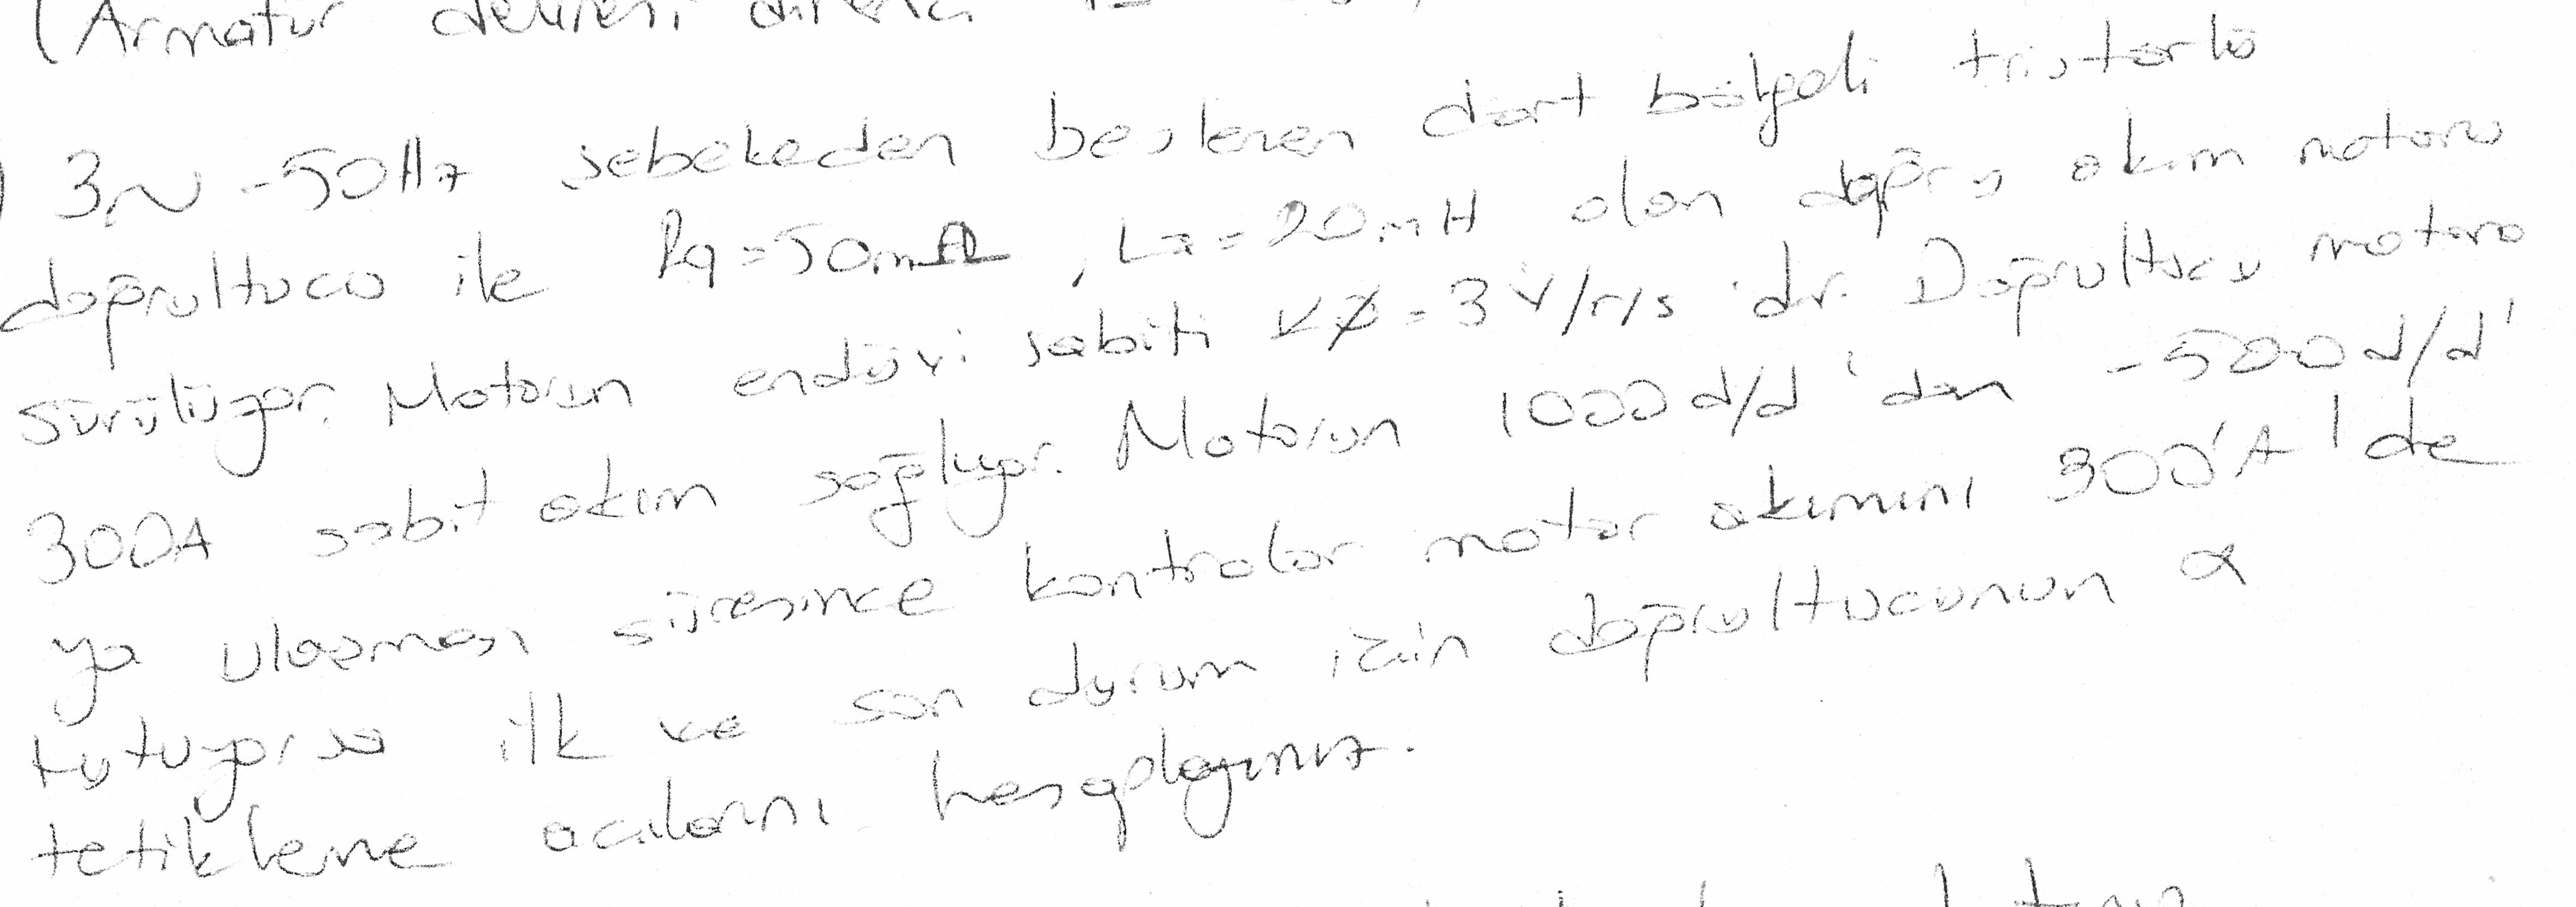 (Armatür devresi direnci
3~ -50Hz şebekeden beslenen dört bölgeli tristörlü
doğrultucu ile Ra=50mΩ, La=20mH olan doğru akım motoru
sürülüyor. Motorun endüvi sabiti KØ=3 V/r/s 'dir. Doğrultucu motora
300A sabit akım sağlıyor. Motorun 1000 d/d 'dan -500 d/d'
ya ulaşması süresince kontrolör motor akımını 300'A'de
tutuyorsa ilk ve son durum için doğrultucunun α
tetikleme açılarını hesaplayınız.